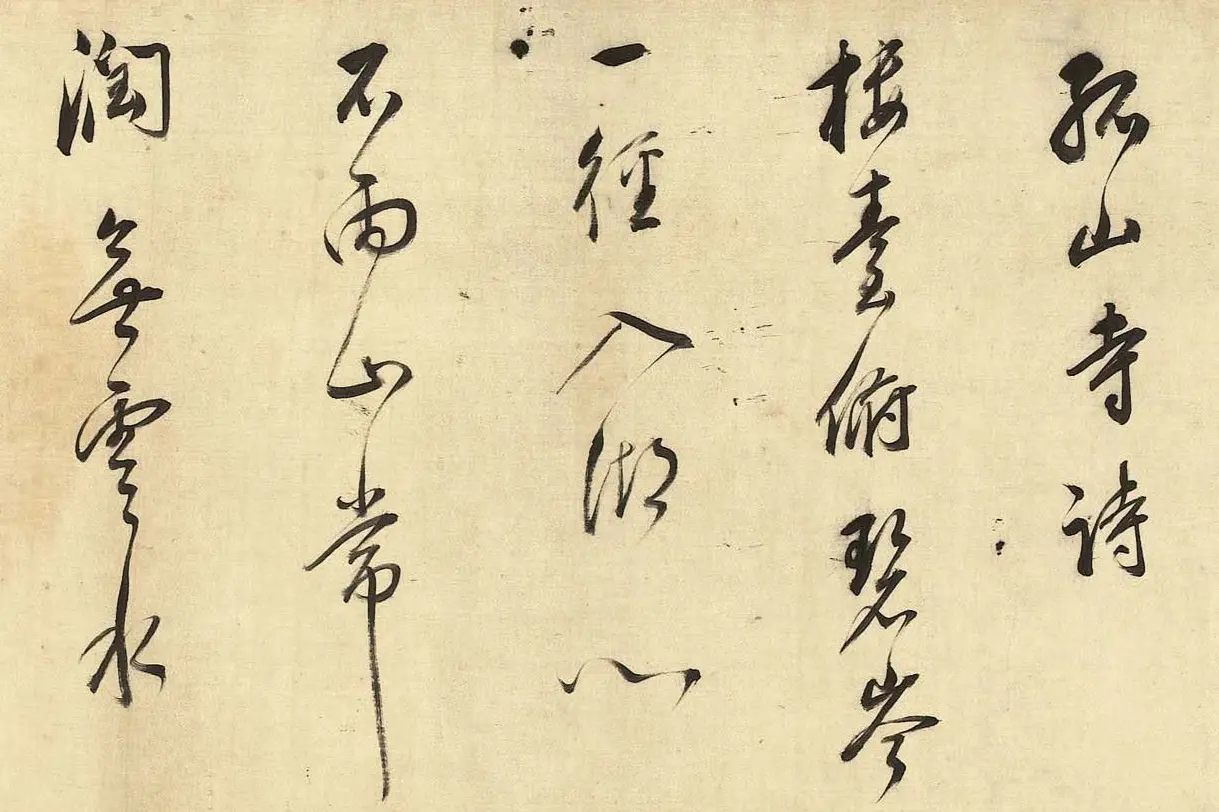 孤山寺詩
樓臺俯碧岑
一徑入湖心
不雨山常
潤無雲水